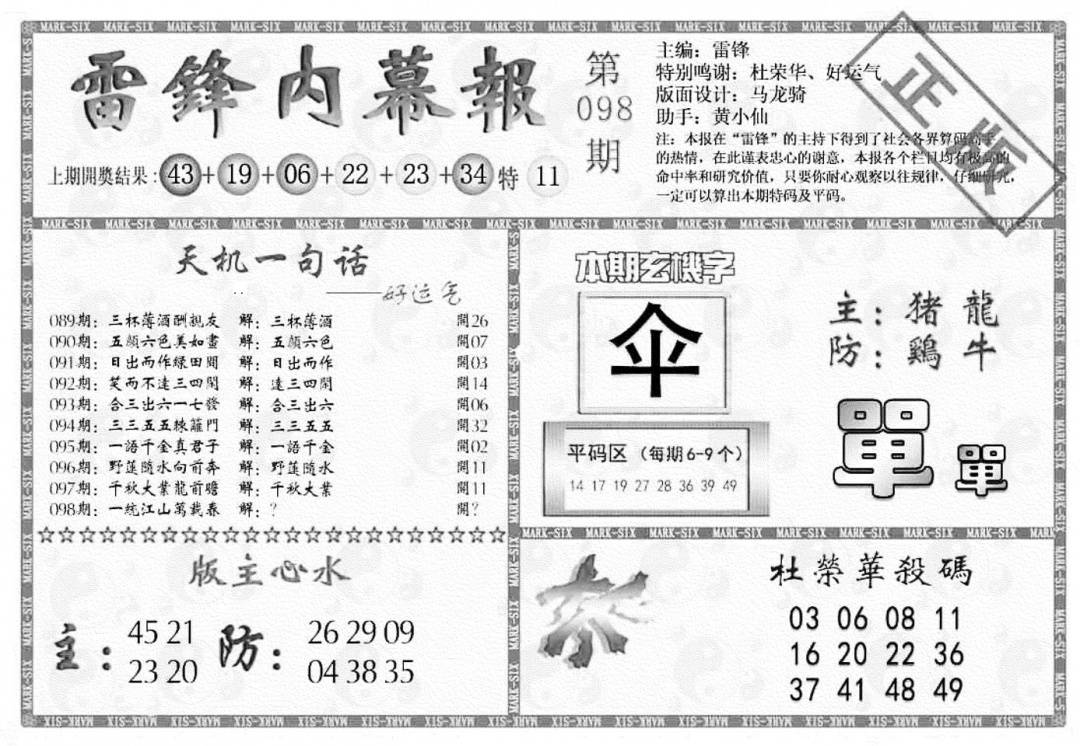 雷鋒内幕報
第
098
期
主编：雷锋
特别鸣谢：杜荣华、好运气
版面设计：马龙骑
助手：黄小仙
注：本报在“雷锋”的主持下得到了社会各界算码高手
的热情，在此谨表忠心的谢意，本报各个栏目均有极高的
命中率和研究价值，只要你耐心观察以往规律，仔细研究，
一定可以算出本期特码及平码。
正版
上期開獎結果：43+19+06+22+23+34特 11
天机一句话
——好运气
089期：三杯薄酒酬親友 解：三杯薄酒 開26
090期：五顏六色美如畫 解：五顏六色 開07
091期：日出而作緑田間 解：日出而作 開03
092期：笑而不達三四間 解：達三四間 開14
093期：合三出六一七發 解：合三出六 開06
094期：三三五五棟籬門 解：三三五五 開32
095期：一語千金真君子 解：一語千金 開02
096期：野蓮隨水向前奔 解：野蓮隨水 開11
097期：千秋大業龍前瞻 解：千秋大業 開11
098期：一統江山萬載春 解：？ 開？
本期玄機字
伞
主：猪龍
防：鷄牛
平码区（每期6-9个）
14 17 19 27 28 36 39 49
單單
版主心水
主：45 21
23 20
防：26 29 09
04 38 35
杜榮華殺碼
03 06 08 11
16 20 22 36
37 41 48 49
MARK-SIX